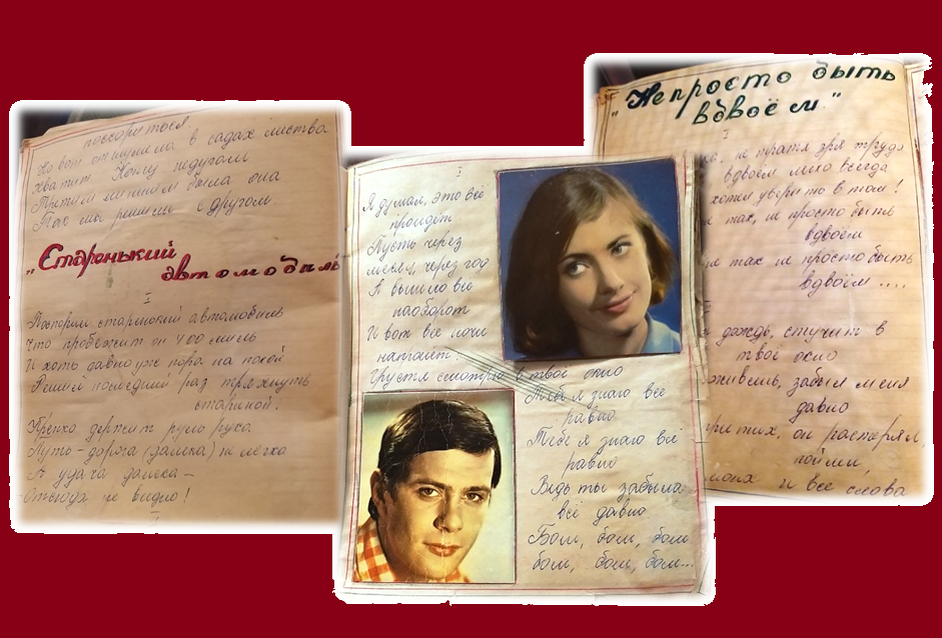 поссориться
Но вот отшумела в садах листва
хватит. Конец недугам
Третьим лишним была она
Так мы решили с другом
"Старенький
автомобиль"
I
Поспорил старенький автомобиль
Что пробежит он 400 миль
И хоть давно уж пора на покой
Решил последний раз тряхнуть
стариной.
Крепко держит руль рука
Путь-дорога (далека) не легка
А удача далека –
Отсюда не видно!
II
I
Я думал, это всё
пройдёт
Пусть через
месяц, через год
А вышло всё
наоборот
И вот всё ночи
напролёт.
Грустя смотрю в твоё окно
Тебя я знаю всё
равно
Тебе я знаю всё
равно
Ведь ты забыла
всё давно
Бом, бом, бом
бом, бом, бом...
"Не просто быть
вдвоём."
I
не тратя зря труда
вдвоём легко всегда
хотел уверить в том!
так, не просто быть
вдвоём
не так не просто быть
вдвоём....
дождь, стучит в
твоё окно
забыл меня
давно
притих, он растерял
пойми,
и все слова